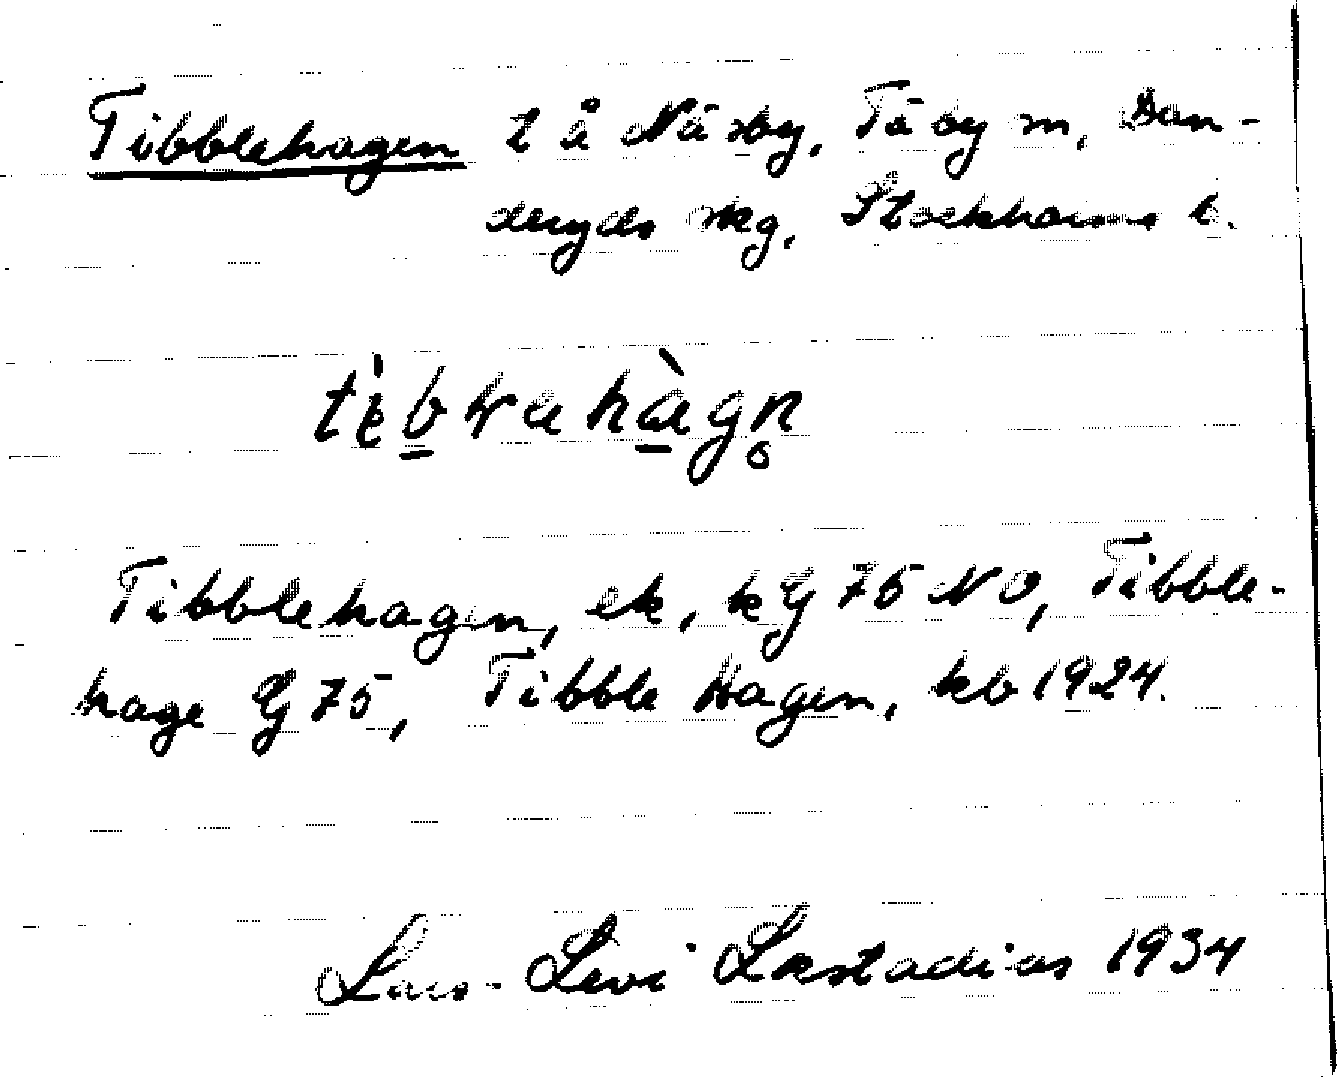 Tibblehagen t å Näsby, Täby sn, Dan-
deryds skg, Stockholms l.
Tibblehagen, ek, kg 75 NO, Tibble-
hage Gg 75, Tibble Hagen, kb 1924.
Lars-Levi Læstadius 1934